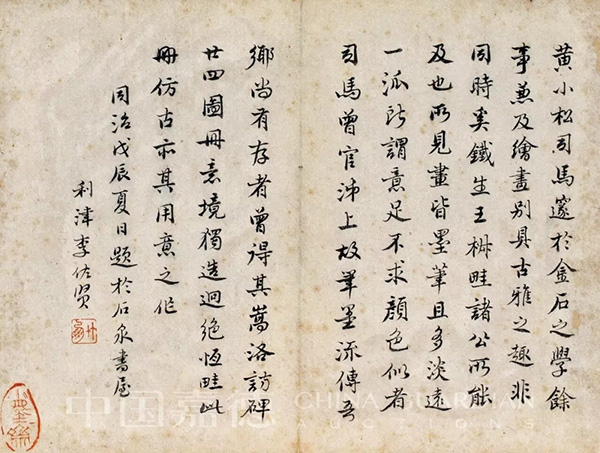 黄小松司馬邃於金石之學餘
事兼及繪畫別具古雅之趣非
同時奚鐵生王椒畦諸公所能
及也所見畫皆墨筆且多淡遠
一派所謂意足不求顏色似者
司馬曾官泲上故筆墨流傳吾
鄉尚有存者曾得其嵩洛訪碑
廿四圖冊意境獨造迥絕恆畦此
冊仿古亦其用意之作
同治戊辰夏日題於石泉書屋
利津李佐贤
中国嘉德
CHINA GUARDIAN
AUCTIONS